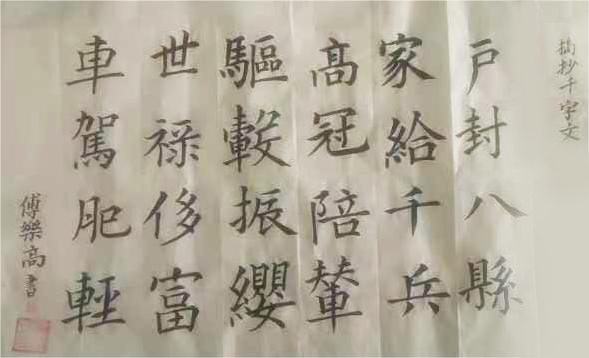 摘抄千字文
戸封八縣
家給千兵
髙冠陪輦
驅轂振纓
世祿侈富
車駕肥輕
傅樂高書